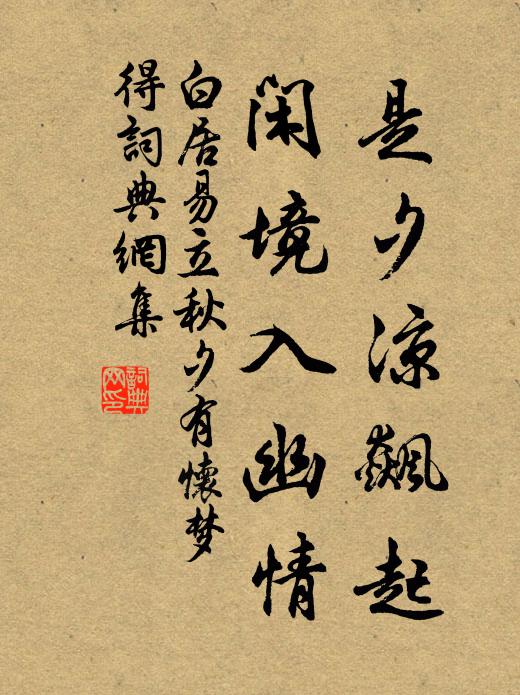 是夕涼飆起
閑境入幽情
白居易立秋夕有懷梦
得詞典網集
詞典
网印